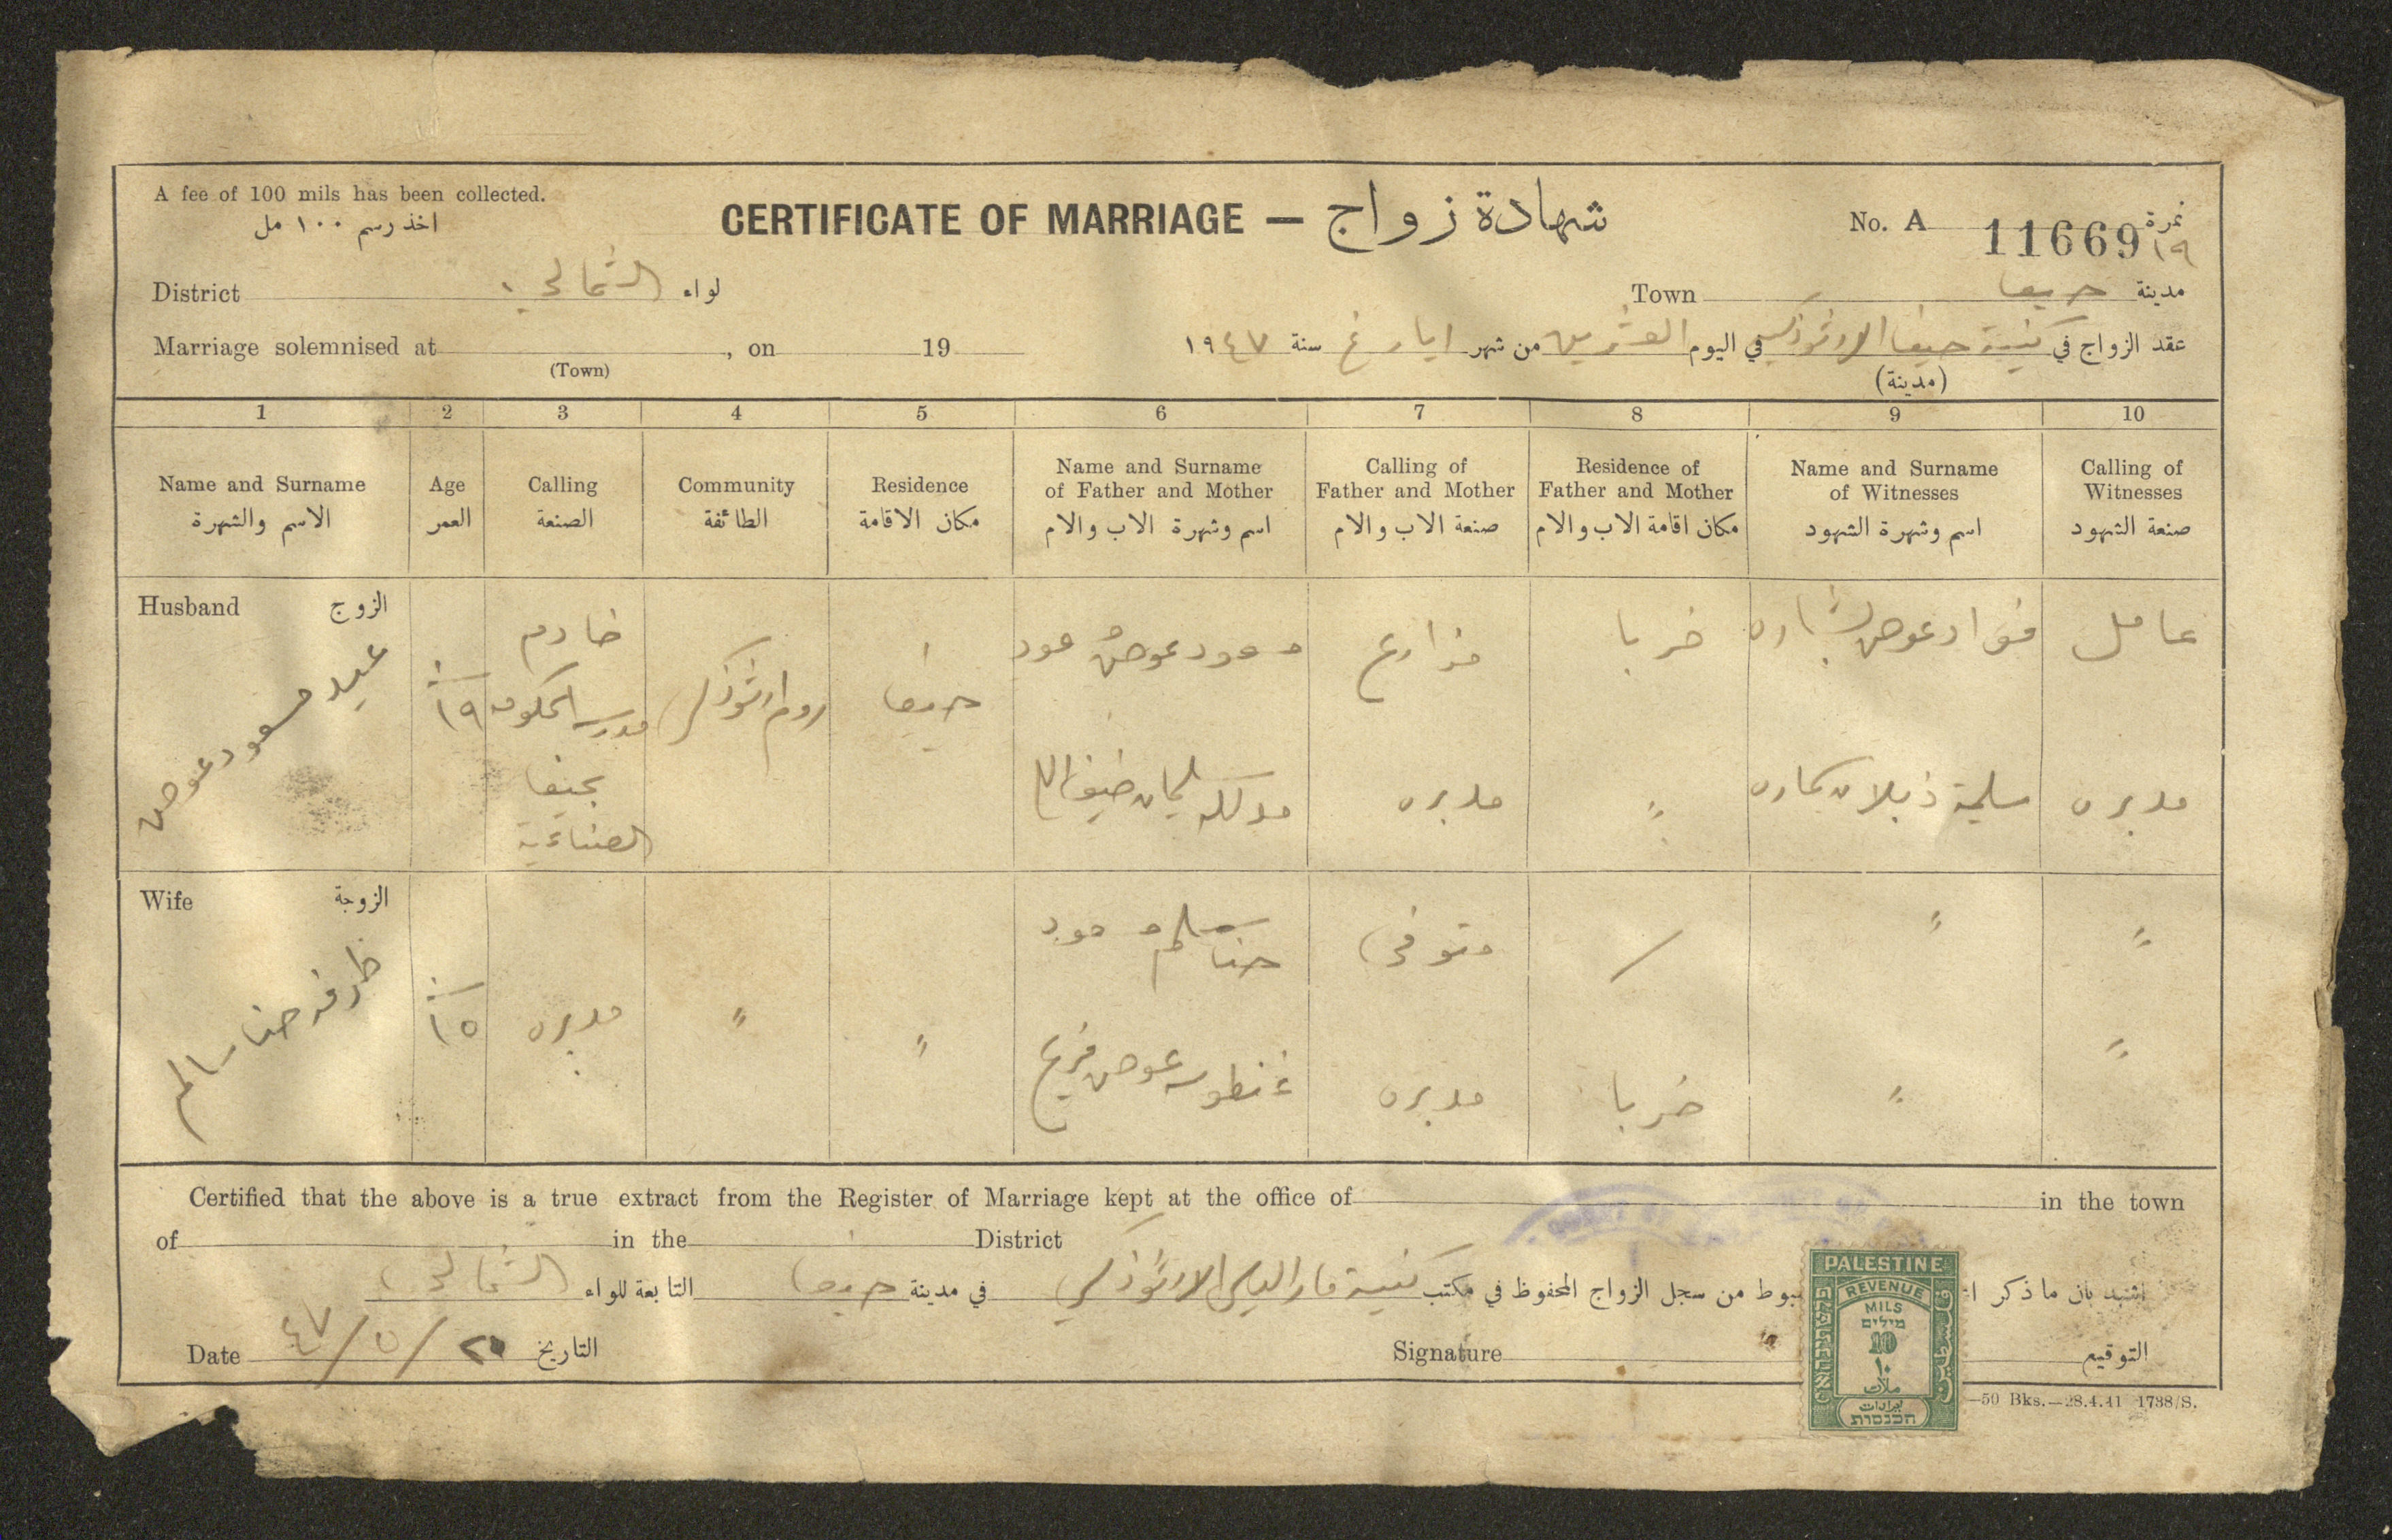 A fee of 100 mils has been collected.
اخذ رسم ١٠٠ مل
CERTIFICATE OF MARRIAGE — شهادة زواج
No. A 11669 نمرة
١٩
District الشمالي لواء
Town حيفا مدينة
Marriage solemnised at , on 19
(Town)
عقد الزواج في كنيسة حيفا الارثوذكسية في اليوم العشرين من شهر ايار غ سنة ١٩٤٧
(مدينة)
1 2 3 4 5 6 7 8 9 10
Name and Surname
الاسم والشهرة
Age
العمر
Calling
الصنعة
Community
الطائفة
Residence
مكان الاقامة
Name and Surname
of Father and Mother
اسم وشهرة الاب والام
Calling of
Father and Mother
صنعة الاب والام
Residence of
Father and Mother
مكان اقامة الاب والام
Name and Surname
of Witnesses
اسم وشهرة الشهود
Calling of
Witnesses
صنعة الشهود
Husband الزوج
عيد مسعود عوض
١٩
خادم
مدرسة الحكومة
بحيفا
الصناعية
روم ارثوذكس
حيفا
عوض
سليمان ضيف الله
مزارع
مدبره
خربا
"
فؤاد عوض بشاره
سليمة
عامل
مدبره
Wife الزوجة
ظرفه حنا سالم
١٥
مدبره
"
"
حنا سالم
عوض فريح
متوفي
مدبره
/
خربا
"
"
"
"
Certified that the above is a true extract from the Register of Marriage kept at the office of in the town
of in the District
اشهد بان ما ذكر من سجل الزواج المحفوظ في مكتب كنيسة مار الياس الارثوذكسي في مدينة حيفا التابعة للواء الشمالي
Date ٤٧/٥/٢٥ التاريخ
Signature التوقيع
PALESTINE
REVENUE
MILS
מילים
10
١٠
ملات
ايرادات
הכנסות
فلسطين
פלשתינה א״י
—50 Bks.—28.4.41 1738/S.